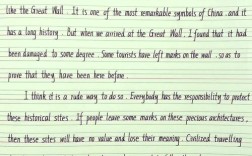 like the Great Wall. It is one of the most remarkable symbols of China and it
has a long history. But when we arrived at the Great Wall, I found that it had
been damaged to some degree. Some tourists have left marks on the wall so as to
prove that they have been here before.
I think it is a rude way to do so. Everybody has the responsibility to protect
these historical sites. If people leave some marks on these precious architectures,
then these sites will have no value and lose their meaning. Civilized travelling